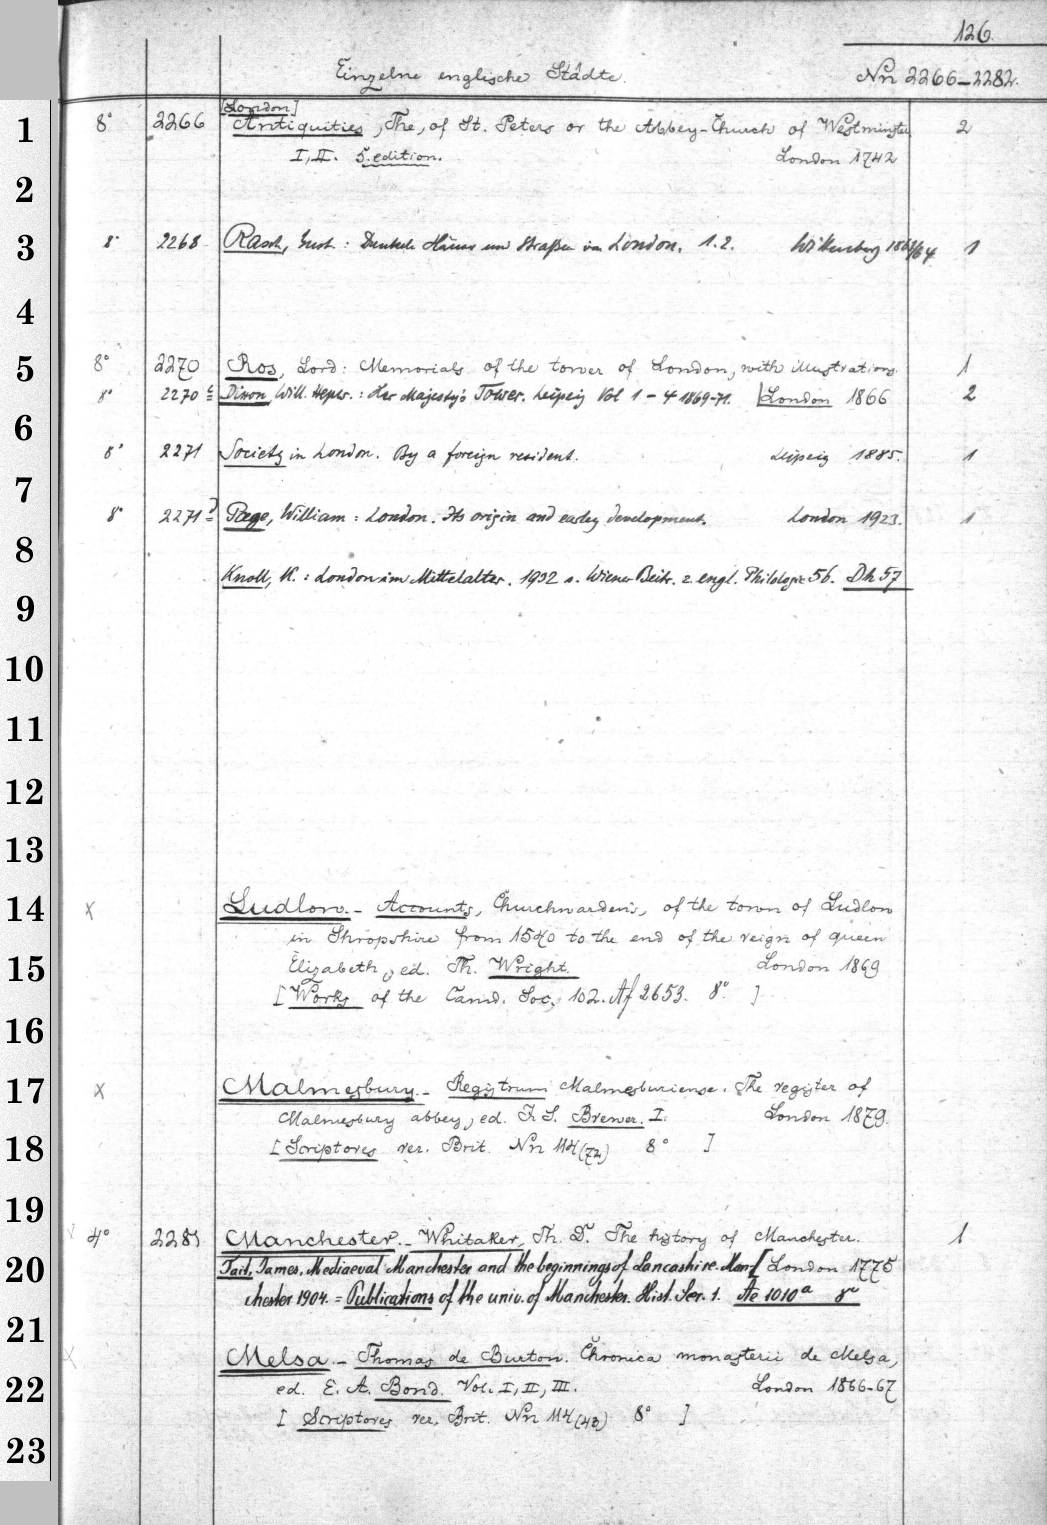 126.
Einzelne englische Städte. Nn 2266-2282.
[London]
1 8° 2266 Antiquities, The, of St. Peters or the Abbey-Church of Westminster 2
I, II. 5. edition. London 1742
2
3 8° 2268 Rasch, Gust.: Dunkele Häuser und Straßen in London. 1.2. Wittenberg 1863/64 1
4
5 8° 2270 Ros, Lord: Memorials of the tower of London, with illustrations 1
8° 2270 Dixon, Will. Hepw.: Her Majesty's Tower. Leipzig Vol 1-4 1869-71. [London 1866 2
6
8° 2271 Society in London. By a foreign resident. Leipzig 1885. 1
7
8° 2271 Page, William: London. Its origin and earley development. London 1923. 1
8
Knoll, K.: London im Mittelalter. 1932 s. Wiener Beitr. z. engl. Philologie 56. Dh 57
9
10
11
12
13
14 x Ludlow.- Accounts, Churchwarden's, of the town of Ludlow
in Shropshire from 1540 to the end of the reign of queen
15 Elizabeth, ed. Th. Wright. London 1869
[Works of the Camd. Soc, 102. Af 2653. 8°. ]
16
17 x Malmesbury.- Registrum Malmesburiense. The register of
Malmesbury abbey, ed. J. S. Brewer. I. London 1879.
18 [Scriptores rer. Brit. Nn 114(72) 8° ]
19
4° 2281 Manchester.- Whitaker, Th. D. The history of Manchester. 1
20 Tait, James, Mediaeval Manchester and the beginnings of Lancashire. Man- [London 1775
chester 1904. = Publications of the univ. of Manchester. Hist. Ser. 1. Ae 1010a 8°
21
x Melsa.- Thomas de Burton. Chronica monasterii de Melsa,
22 ed. E. A. Bond. Vol. I, II, III. London 1866-67
[Scriptores rer. Brit. Nn 114(43) 8° ]
23